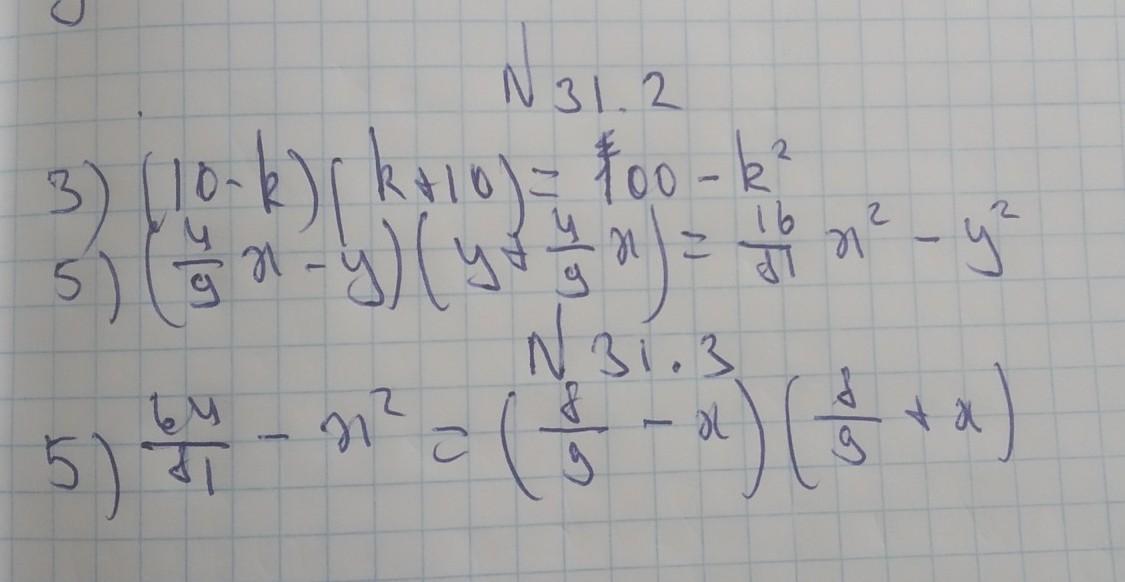 N 31.2
3) (10-k)(k+10) = 100 - k²
5) (4/9 x - y)(y + 4/9 x) = 16/81 x² - y²
N 31.3
5) 64/81 - x² = (8/9 - x)(8/9 + x)